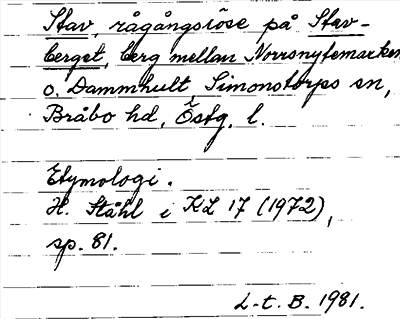 Stav, rågångsröse på Stav-
berget, berg mellan Norrsnytemarken
o. Dammhult, Simonstorps sn,
Bråbo hd, Östg. l.
Etymologi.
H. Ståhl i KL 17 (1972),
sp. 81.
L-t. B. 1981.